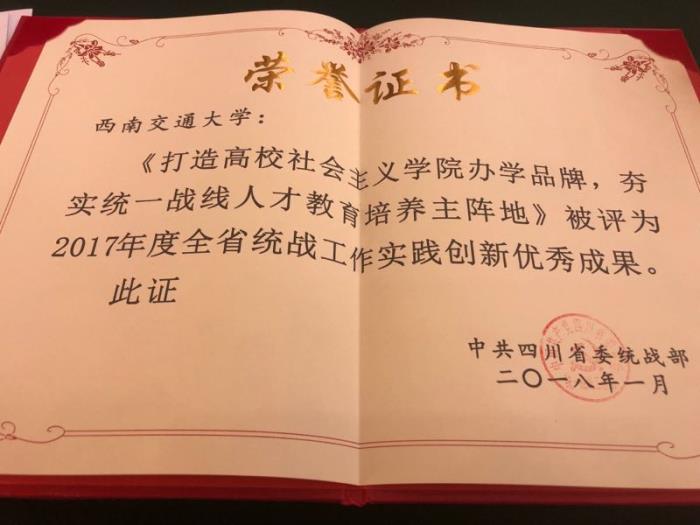 荣誉证书
西南交通大学：
《打造高校社会主义学院办学品牌，夯
实统一战线人才教育培养主阵地》被评为
2017年度全省统战工作实践创新优秀成果。
此证
中共四川省委统战部
二〇一八年一月